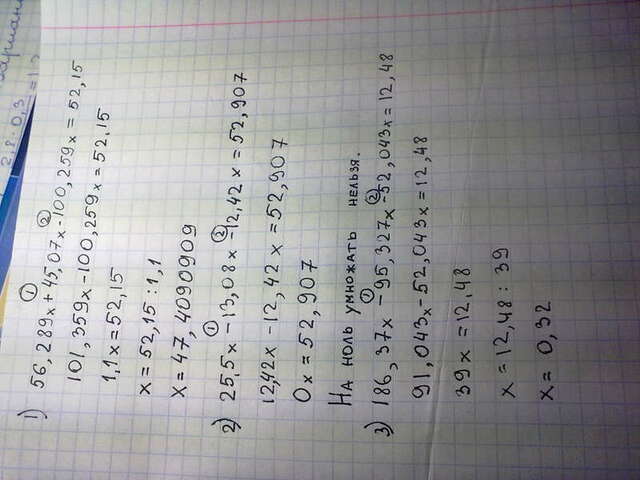 вариан
2,8:0,3
1) 56,289x + 45,07x - 100,259x = 52,15
① ②
101,359x - 100,259x = 52,15
1,1x = 52,15
x = 52,15 : 1,1
x = 47,4090909
2) 25,5x - 13,08x - 12,42x = 52,907
① ②
12,42x - 12,42x = 52,907
0x = 52,907
На ноль умножать нельзя.
3) 186,37x - 95,327x - 52,043x = 12,48
① ②
91,043x - 52,043x = 12,48
39x = 12,48
x = 12,48 : 39
x = 0,32